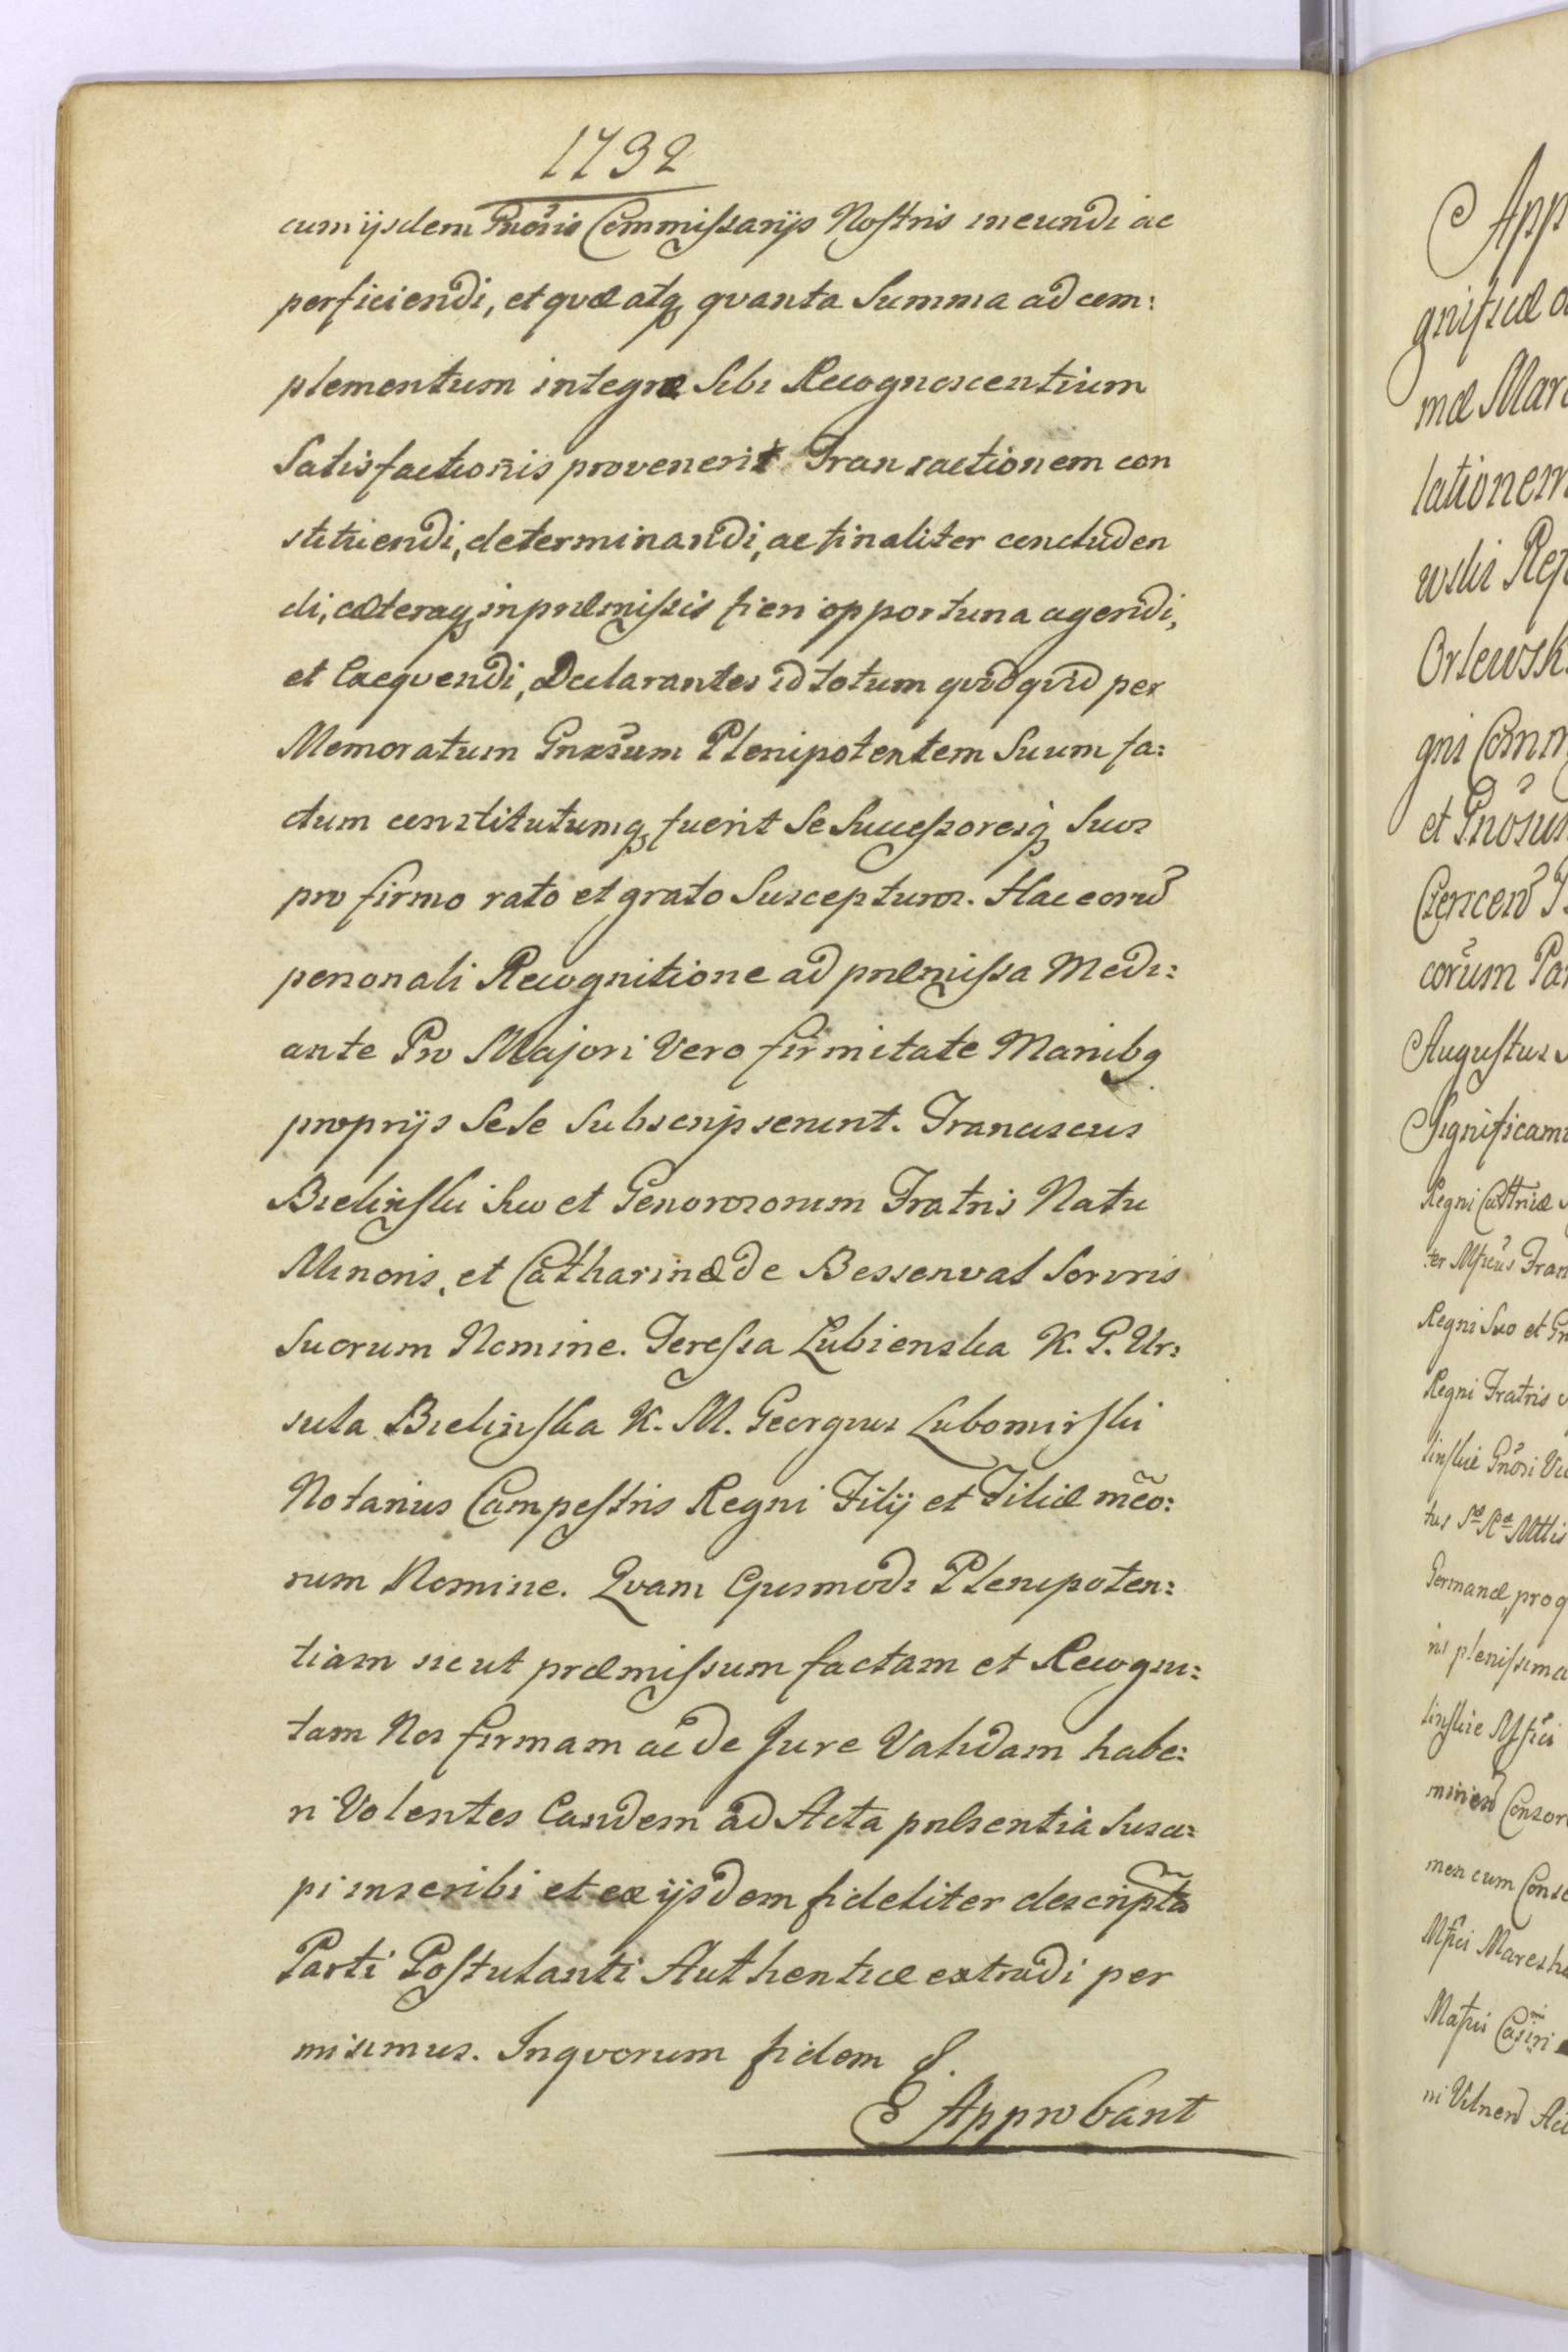 1732
cum ijsdem Gnosis Commissarijs Nostris ineundi ac
perficiendi, et quæ atq; quanta Summa ad com:
plementum integræ Sibi Recognoscentium
Satisfactionis provenerit Transactionem con
stituendi, determinandi, ac finaliter concluden
di, cæteraq; in præmissis fieri opportuna agendi,
et Exequendi, Declarantes id totum quidquid per
Memoratum Gnosum Plenipotentem Suum fa:
ctum constitutumq; fuerit Se Successoresq; Suos
pro firmo rato et grato Suscepturos. Hac eorũ
personali Recognitione ad præmissa Medi:
ante Pro Majori Vero firmitate Manibq
proprijs Sese Subscripserunt. Franciscus
Bielinski Suo et Generosorum Fratris Natu
Minoris, et Catharinæ de Bessenval Sororis
Suorum Nomine. Teressa Lubienska K. P. Ur:
sula Bielinska K. M. Georgius Lubomirski
Notarius Campestris Regni Filij et Filiæ mẽo:
rum Nomine. Quam Ejusmodi Plenipoten:
tiam sicut præmissum factam et Recogni:
tam Nos firmam ac de Jure Validam habe:
ri Volentes Eandem ad Acta præsentia Susci:
pi inscribi et ex ijsdem fideliter descriptã
Parti Postulanti Authenticæ extradi per
misimus. In quorum fidem &.
Approbant
App
gnitiæ
mæ Mar
lationem
wski Reg
Orlewsk
gni Comm
et Gnosu
corum Pa
Augustus
Significam
Regni Cattriæ
ter Mficus Fran
Regni Suo et Gn
Regni Fratris
linskiæ Gnosi
Germanæ, pro
ni plenissima
linskie Mfici
Consor
men cum Conse
Mfici Maresha